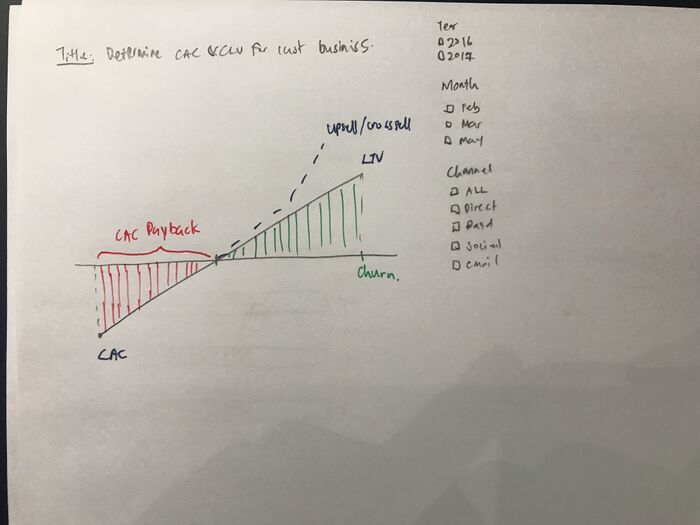 Title: Determine CAC & CLV for cust business.
Year
2016
2017
Month
Feb
Mar
May
Channel
ALL
Direct
Paid
Social
email
upsell/cross sell
LTV
CAC Payback
Churn.
CAC